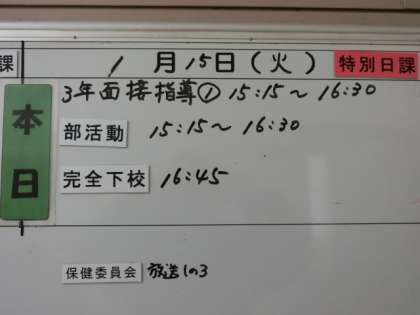 課 1月15日(火) 特別日課
本日 3年面接指導① 15:15~16:30
部活動 15:15~16:30
完全下校 16:45
保健委員会 放送しの3